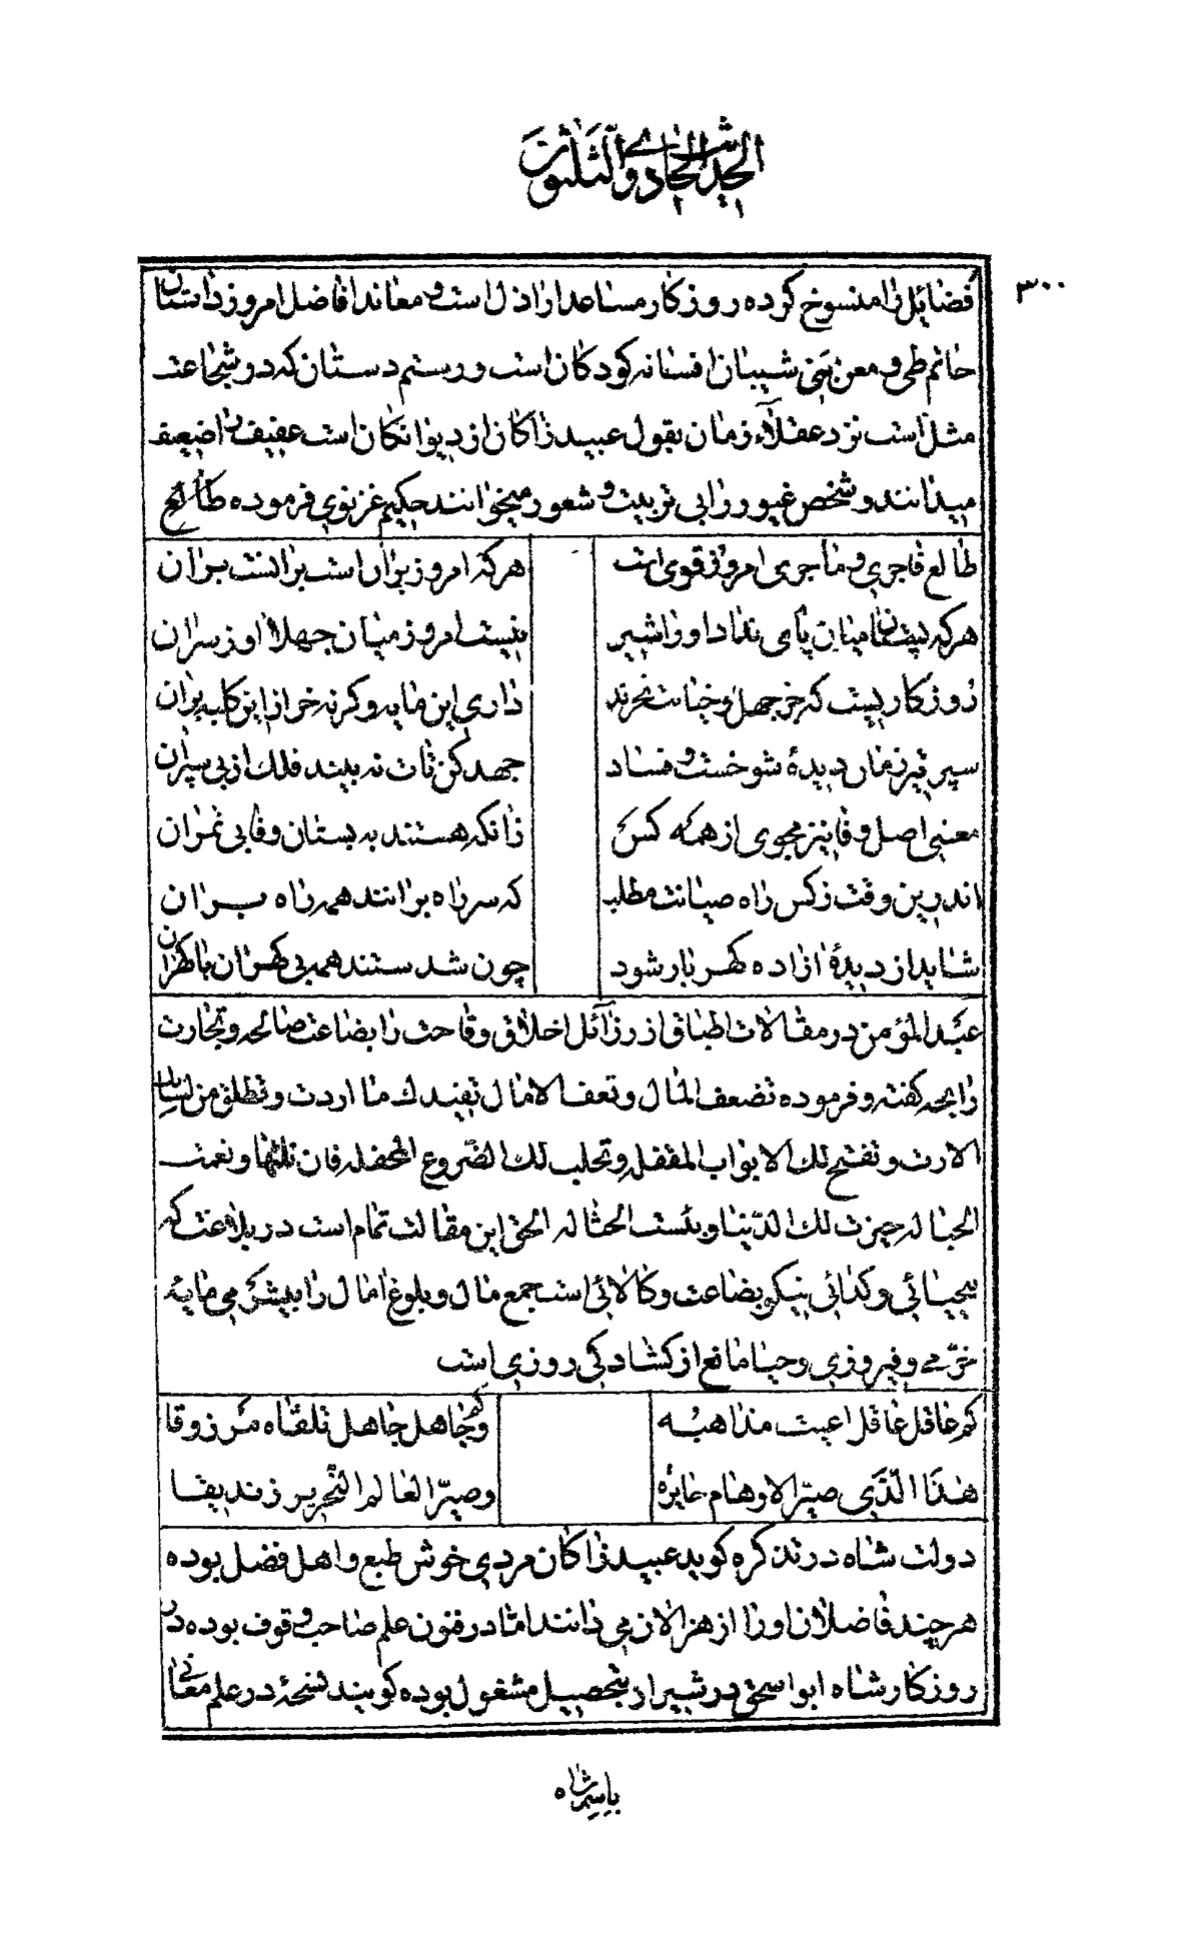 الحديث الحادي والثلثون
٣٠٠
فضایل را منسوخ کرده روزکار مساعد اراذل است و معاند افاضل امروز داستان
حاتم طی و معن بنی شیبان افسانه کودکان است و رستم دستان که در شجاعت
مثل است نزد عقلاء زمان بقول عبید زاکان از دیوانکان است عفیف را ضعیف
میدانند و شخص غیور را بی تربیت و شعور میخوانند حکیم غزنوی فرموده طالح
طالع فاجری و ماجری امروز قوی است
هر که امروز بران است بر انست بران
هر که بینان میان پای نداد او را شیر
نیست امروز میان جهلا او ز سران
روزکاریست که جز جهل و خیانت نخرند
داری این مایه و کرنه خر ازین کلبه بران
سیر تیر زمان دیدهٔ شوخست و فساد
جهد کن تات نه بیند فلک از بی سپران
معنی اصل و فا نیز مجوی از همه کس
زانکه هستند به بستان وفا بی ثمران
اندرین وقت زکس راه صیانت مطلب
که سر راه برانند همه راه بران
شاید از دیدهٔ ازاده کهر بار شود
چون شدستند همه بی کهران با کهران
عبد المؤمن در مقالات اطباق از رزائل اخلاق وقاحت را بضاعت صالحه و تجارت
رابحه کفته و فرموده تضعف المال و تعف الامال تفیدك ما اردت و تطلق من لسانك
الارت و تفتح لك الابواب المقفله و تحلب لك الضروع المحفله فان نلتها و نعمت
الحباله حیزت لك الدنیا و بئست الحثاله الحق این مقالت تمام است در بلاغت که
بیحیائی و کدائی نیکو بضاعت و کالائی است جمع مال و بلوغ امال را بیشرمی مایهٔ
خرمی و فیروزی و حیا مانع از کشادکی روزی است
کم عاقل عاقل اعیت مذاهبه
و کم جاهل جاهل تلقاه مرزوقا
هذا الذی صیر الاوهام حایره
و صیر العالم النحریر زندیقا
دولت شاه در تذکره کوید عبید زاکان مردی خوش طبع و اهل فضل بوده
هر چند فاضلان او را از هزالان می دانند اما در فنون علم صاحب وقوف بوده در
روزکار شاه ابو اسحق در شیراز بتحصیل مشغول بوده کویند نسخهٔ در علم معانی
باسم شاه